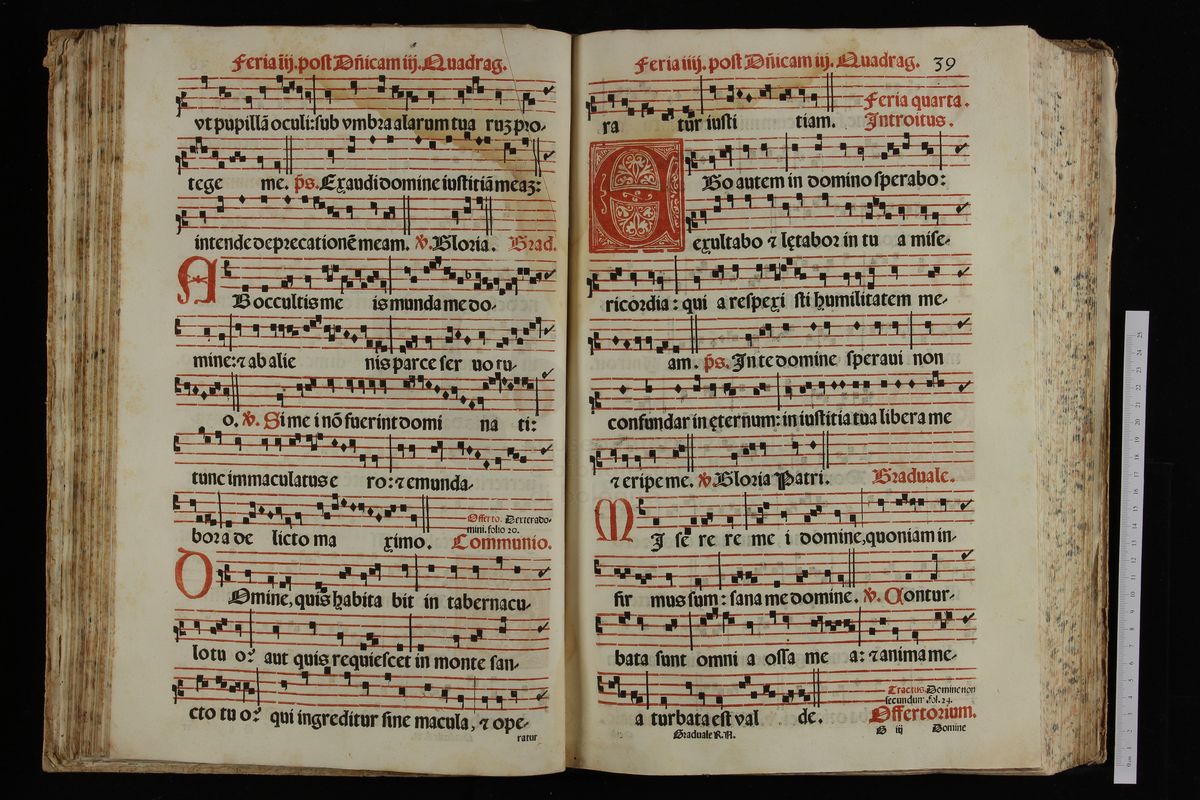 Feria iij. post Dñicam iij. Quadrag.
vt pupillã oculi: sub vmbra alarum tua ruꝫ pro-
tege me. p̃s. Exaudi domine iustitiã meaꝫ:
intende deprecationẽ meam. ℣. Gloria. Grad.
AB occultis me is munda me do-
mine: ⁊ ab alie nis parce ser uo tu-
o. ℣. Si me i nõ fuerint domi na ti:
tunc immaculatus e ro: ⁊ emunda-
Offerto. Dextera do-
mini. folio 20.
bor a de licto ma ximo. Communio.
DOmine, quis habita bit in tabernacu-
lo tu o? aut quis requiescet in monte san-
cto tu o? qui ingreditur sine macula, ⁊ ope-
ratur
Feria iiij. post Dñicam iij. Quadrag. 39
Feria quarta.
ra tur iusti tiam. Introitus.
EGo autem in domino sperabo:
exultabo ⁊ lętabor in tu a mise-
ricordia: qui a respexi sti humilitatem me-
am. p̃s. In te domine speraui non
confundar in ęternum: in iustitia tua libera me
⁊ eripe me. ℣. Gloria Patri. Graduale.
MI se re re me i domine, quoniam in-
fir mus sum: sana me domine. ℣. Contur-
bata sunt omni a ossa me a: ⁊ anima me-
Tractus. Domine non
secundum. fol. 24.
a turbata est val de. Offertorium.
Graduale R. A. G iij Domine